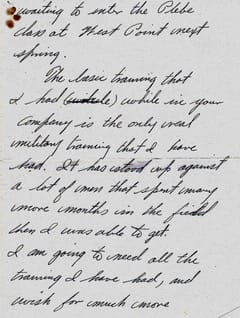 waiting to enter the Plebe
class at West Point next
spring.
The basic training that
I had (while) while in your
company is the only real
military training that I have
had. It has stood up against
a lot of men that spent many
more months in the field
then I was able to get.
I am going to need all the
training I have had, and
wish for much more